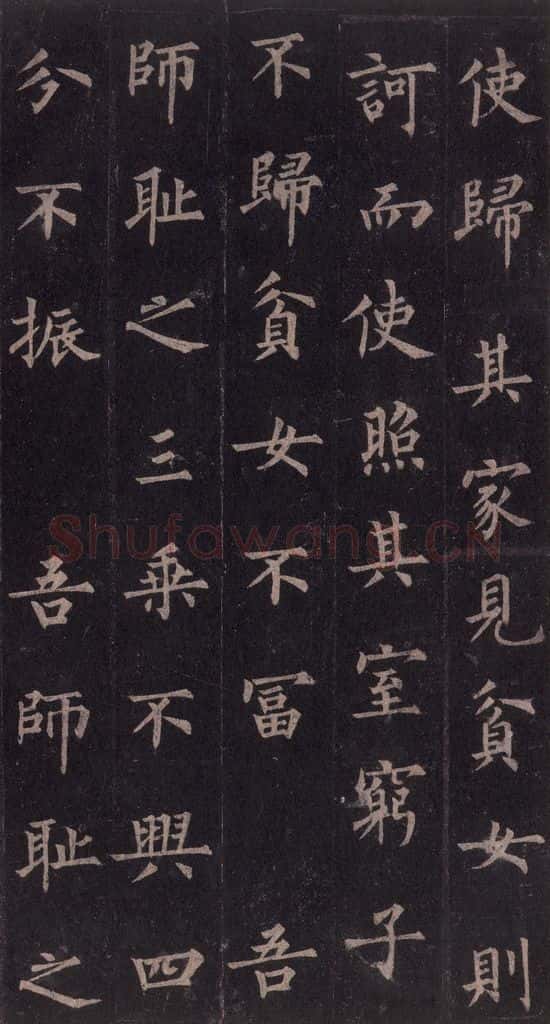 使歸其家見貧女則
訶而使照其室窮子
不歸貧女不冨吾
師耻之三乗不興四
分不振吾師耻之
Shufawang.CN